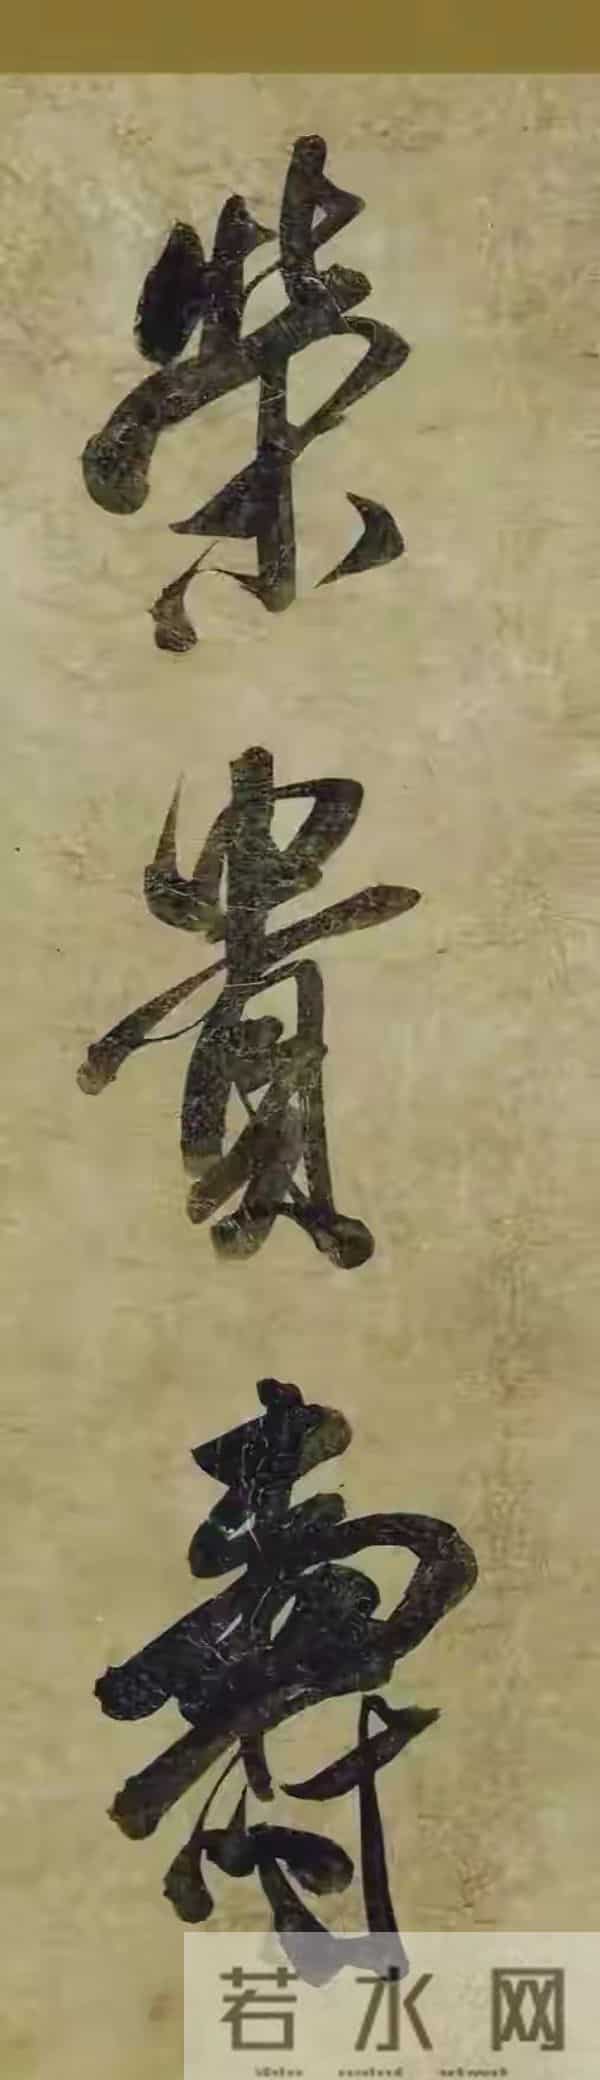 榮貴壽
若水网